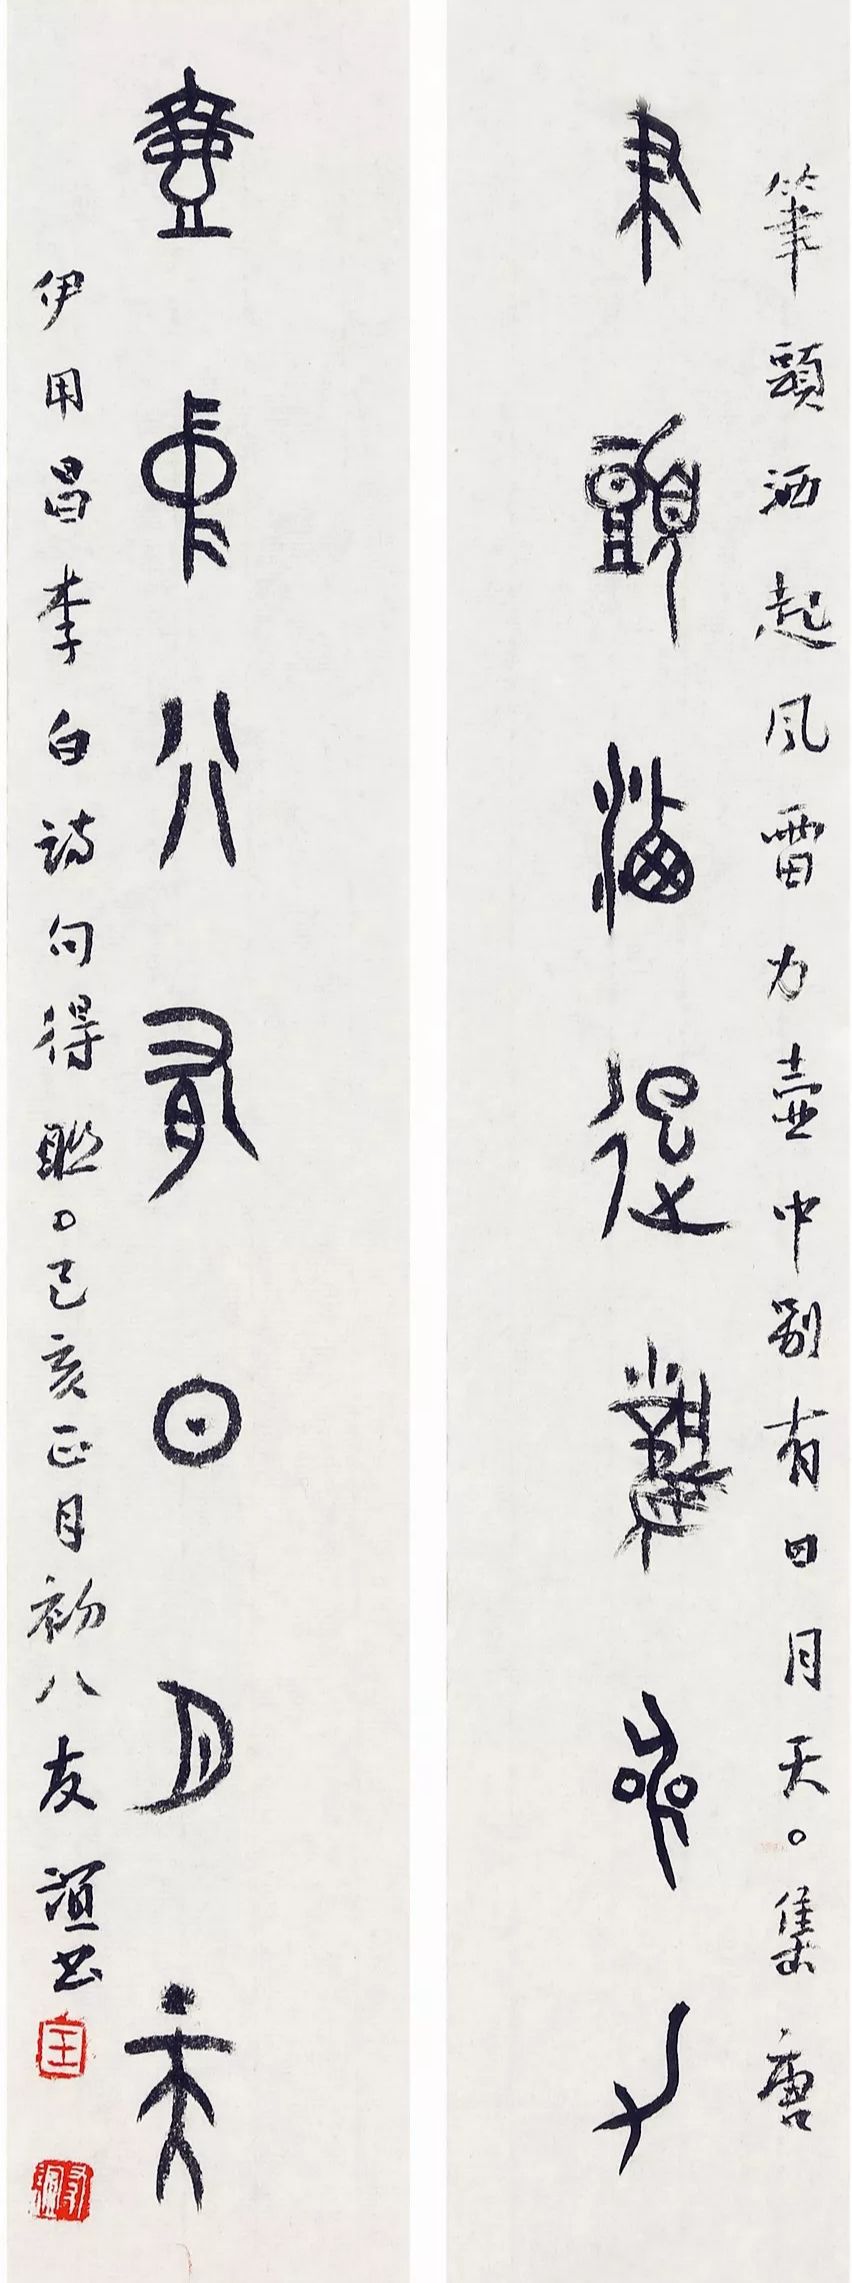 筆頭洒起風雷力壺中別有日月天。集唐
筆頭洒起風雷力
壺中別有日月天
伊用昌李白詩句得聯。己亥正月初八友誼書